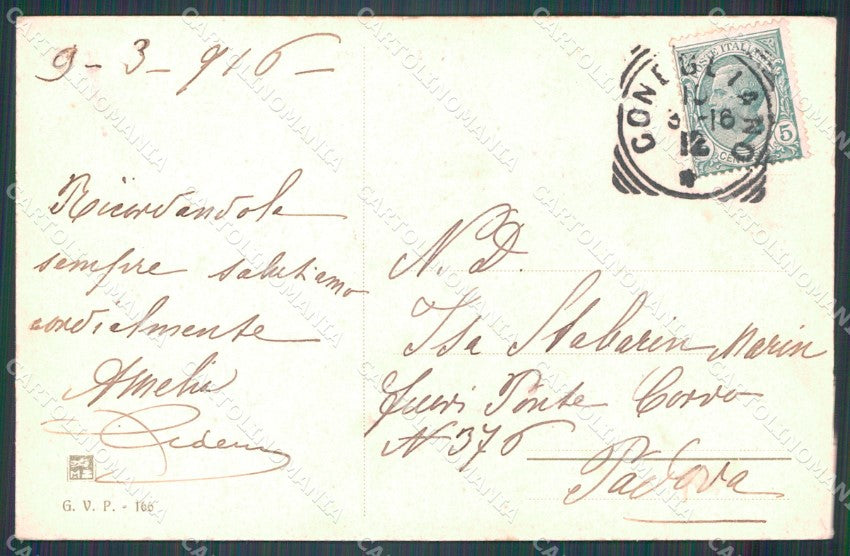 9-3-916-
Ricordandola
sempre salutiamo
cordialmente
Amelia
G. V. P. - 166
CONEGLIANO
3-16
12
POSTE ITALIANE
5
CENT
N. D.
Isa Stabarin Marin
fuori Ponte Corvo
N 376
Padova
CARTOLINOMANIA